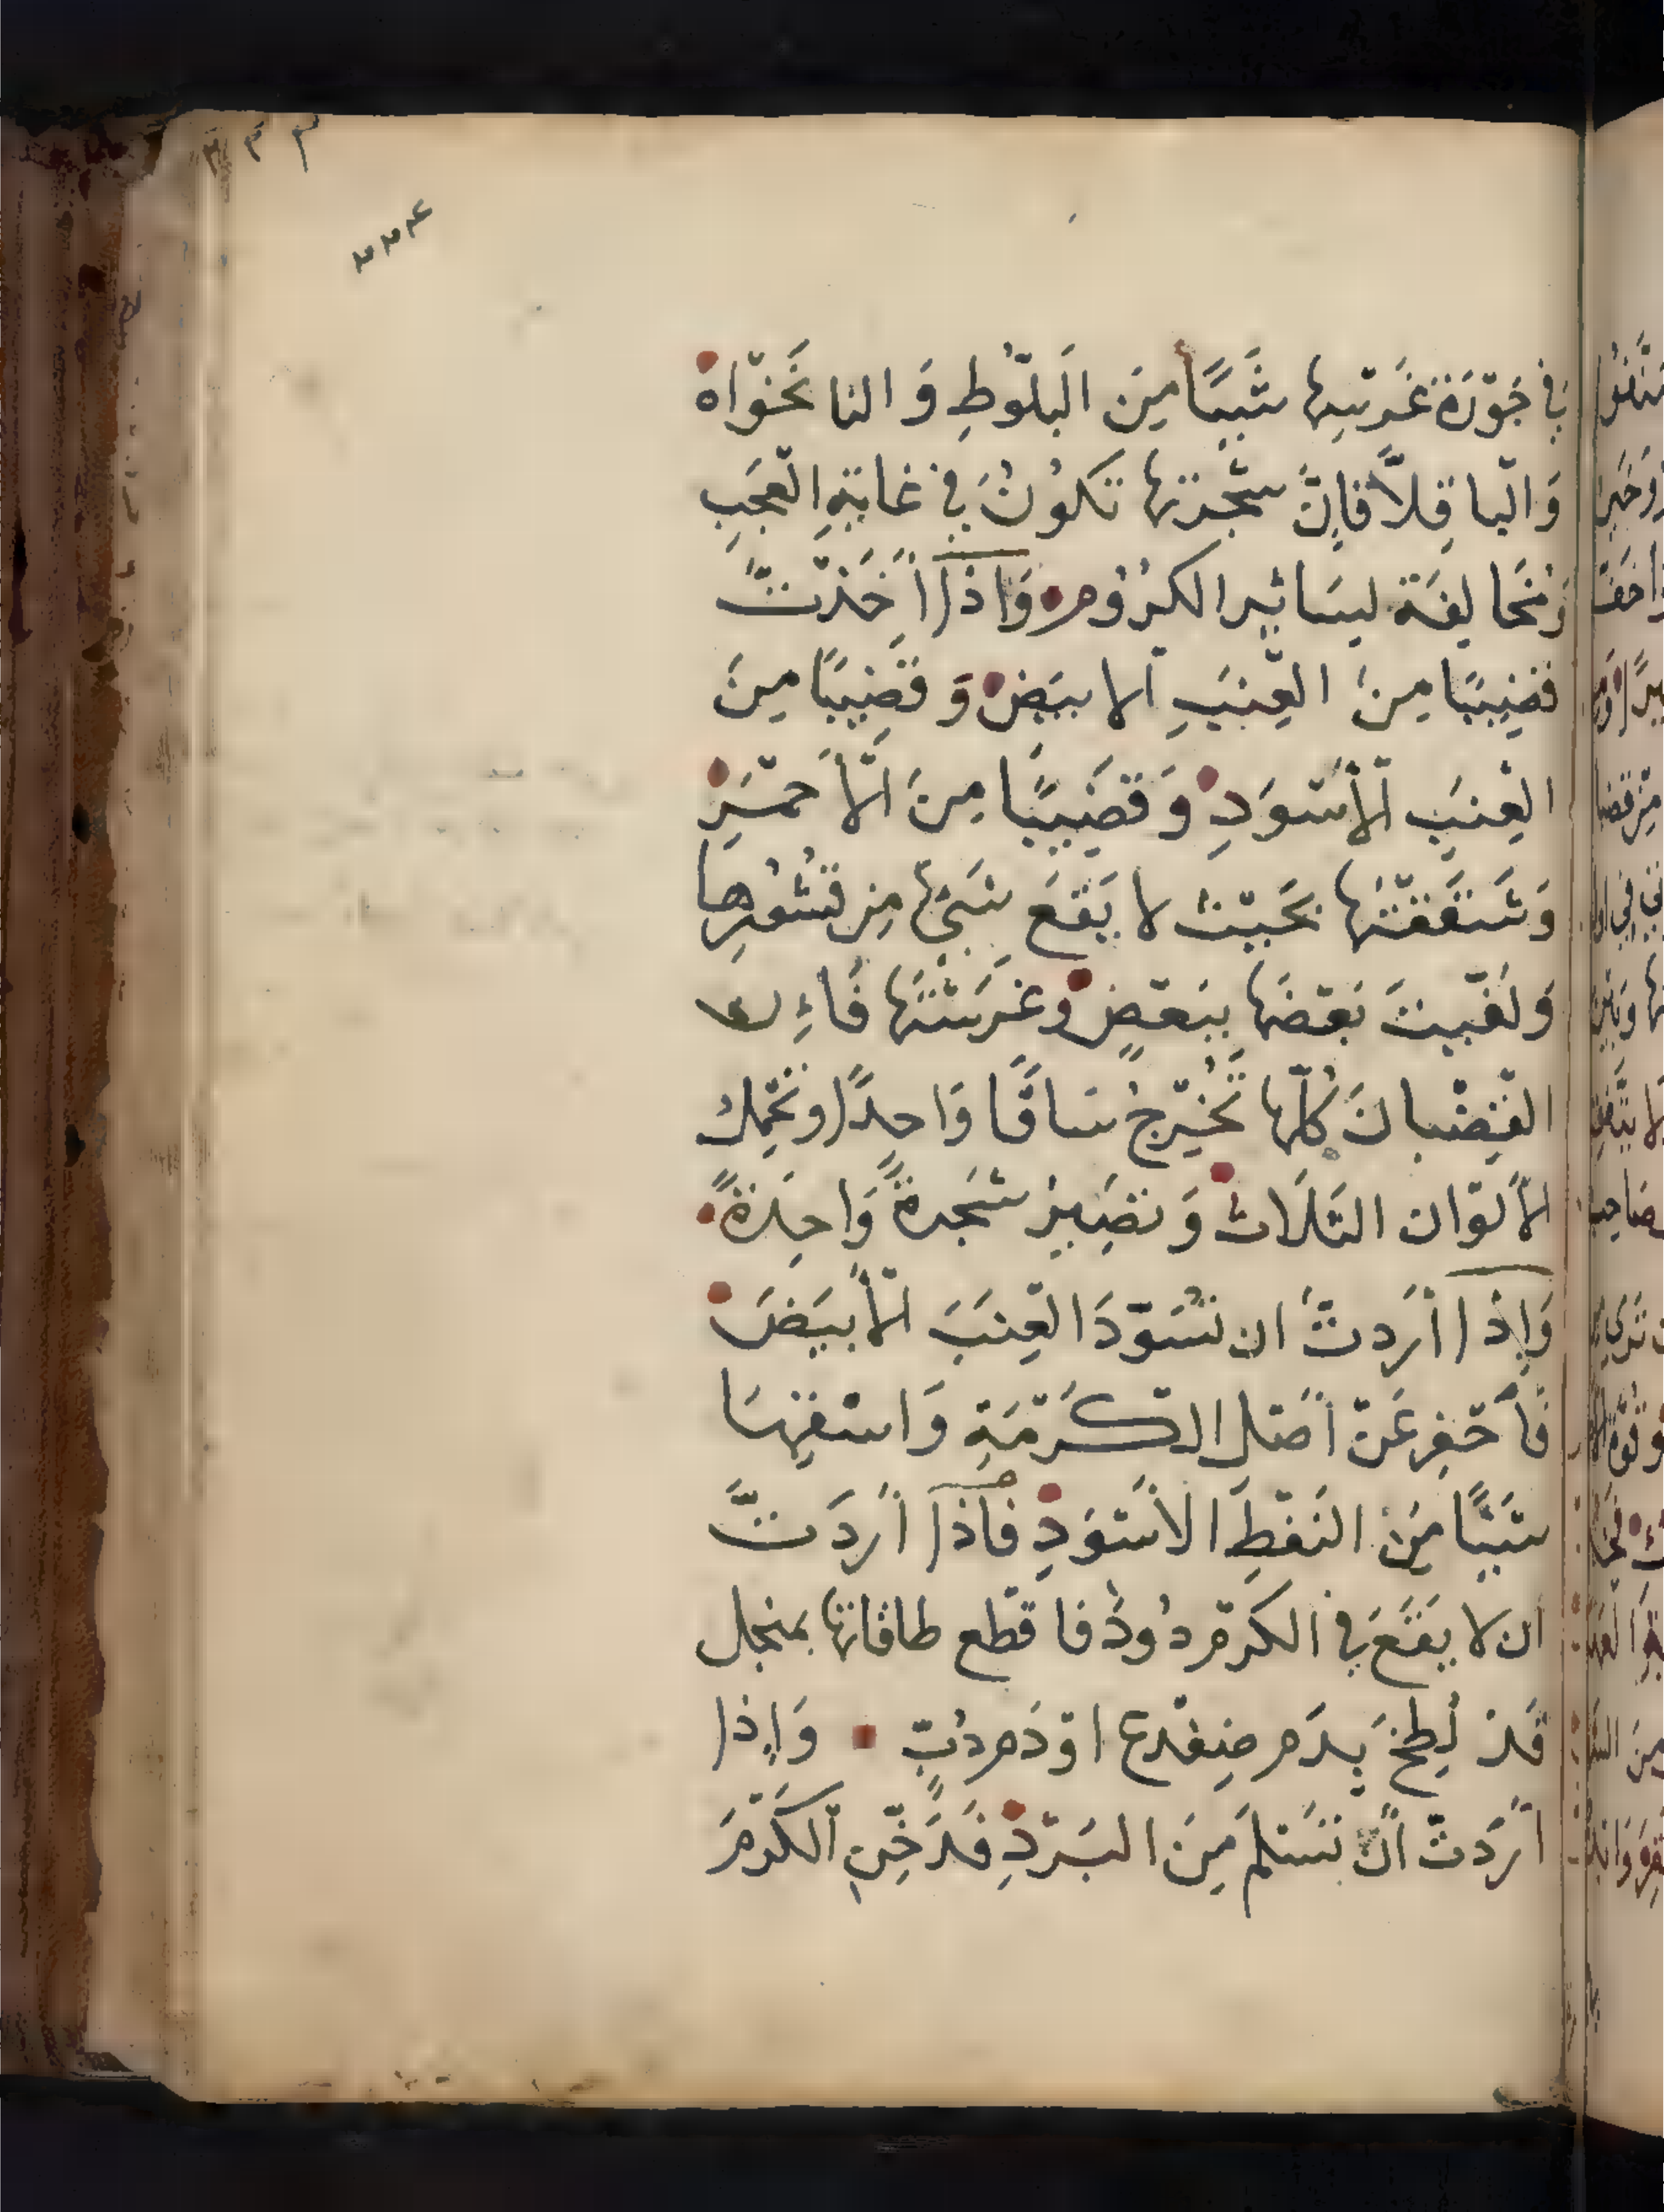 ٣٣٣
٢٢٤
في جَوْرَة غَرْسِها شَيئًا مِنَ البَلّوُطِ وَالنانَخْواه
وَالْباقِلاَّ فَاِنَّ شَجْرتها تَكُونُ في غايَةِ الْعَجَبِ
وَمُخَالِفَة لِسَائِر الكُرُوم وَاِذَا أَخَذْتَ
قَضِيبًا مِنَ العِنَبِ الابيَض وَقَضِيبًا مِنَ
العِنَبِ الأَسْوَدِ وَقَضِيبًا مِنَ الأَحْمَرِ
وَشَقَقْتَهَا بحَيْث لا يَقَعَ شَيْءٌ مِن قُشُورِها
وَلَفّيتَ بَعْضَهَا بِبَعْضٍ وغَرَسْتَهَا فَاءِن
القُضْبانَ كُلّها تَخْرُجُ سَاقًا وَاحِدًا وتَحْمِلُ
الأَلوان الثَلَاث وَتَصِيرُ شَجَرةً وَاحِدَةً
وَإِذا أَرَدتَ ان تُسَوّدَ العِنَبَ الأَبيَضَ
فَأَحْفِر عَنْ أَصْل الكَرْمَةِ وَاسْقِهَا
شَيئًا مِنَ النَفْطِ الاَسْوَدِ فَاذَا أَرَدَتَّ
ان لا يَقَعَ في الكَرْم دُودٌ فاقْطَع طاقاتها بمنجل
قَد لُطِخَ بِدَم ضِفْدع اوْ دَم دُبٍّ وَاِذا
أَرَدتْ أَنْ تَسْلَمَ مِنَ البَرْدِ فَدَخِّنِ الكَرْمَ